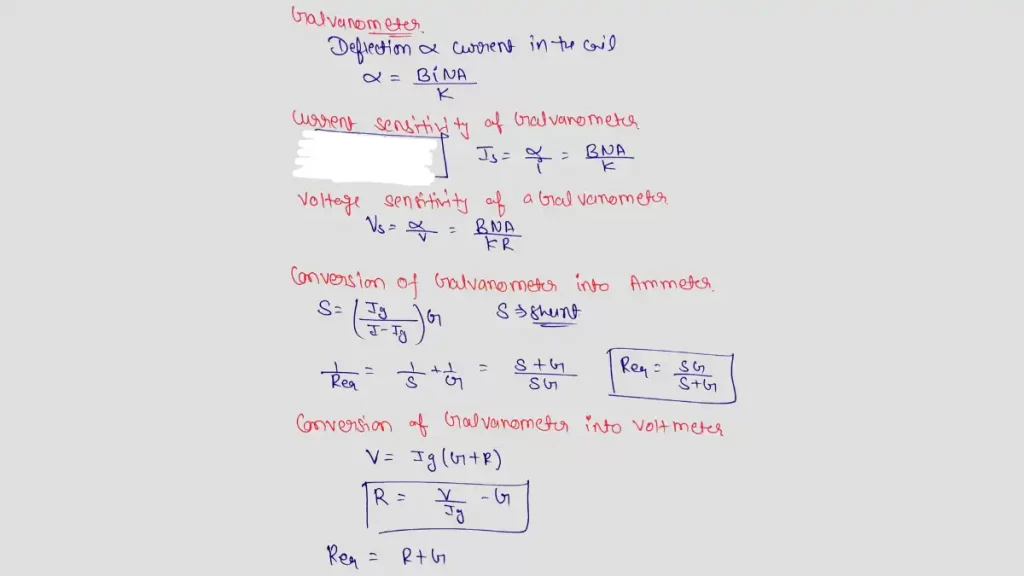 Galvanometer.
Deflection α current in the coil
α = BiNA/K
Current sensitivity of Galvanometer
Is = α/i = BNA/K
Voltage sensitivity of a Galvanometer
Vs = α/V = BNA/KR
Conversion of Galvanometer into Ammeter.
S = (Ig/I-Ig)G S → Shunt
1/Req = 1/S + 1/G = S+G/SG Req = SG/S+G
Conversion of Galvanometer into Voltmeter
V = Ig(G+R)
R = V/Ig - G
Req = R+G